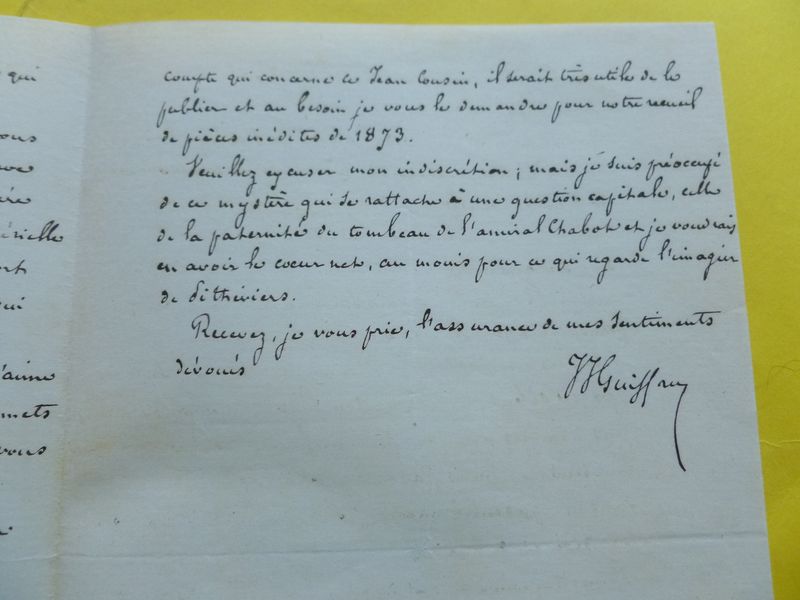 qui
ous
sérielle
ort
qui
j'aime
mets
vous
compte qui concerne ce Jean Cousin, il serait très utile de le
publier et au besoin je vous le demandre pour notre recueil
de pièces inédites de 1873.
Veuillez excuser mon indiscrétion ; mais je suis préoccupé
de ce mystère qui se rattache à une question capitale, celle
de la paternité du tombeau de l'amiral Chabot et je voudrais
en avoir le coeur net, au moins pour ce qui regarde l'imagier
de Pithiviers.
Recevez, je vous prie, l'assurance de mes sentiments
dévoués
JJ Guiffrey